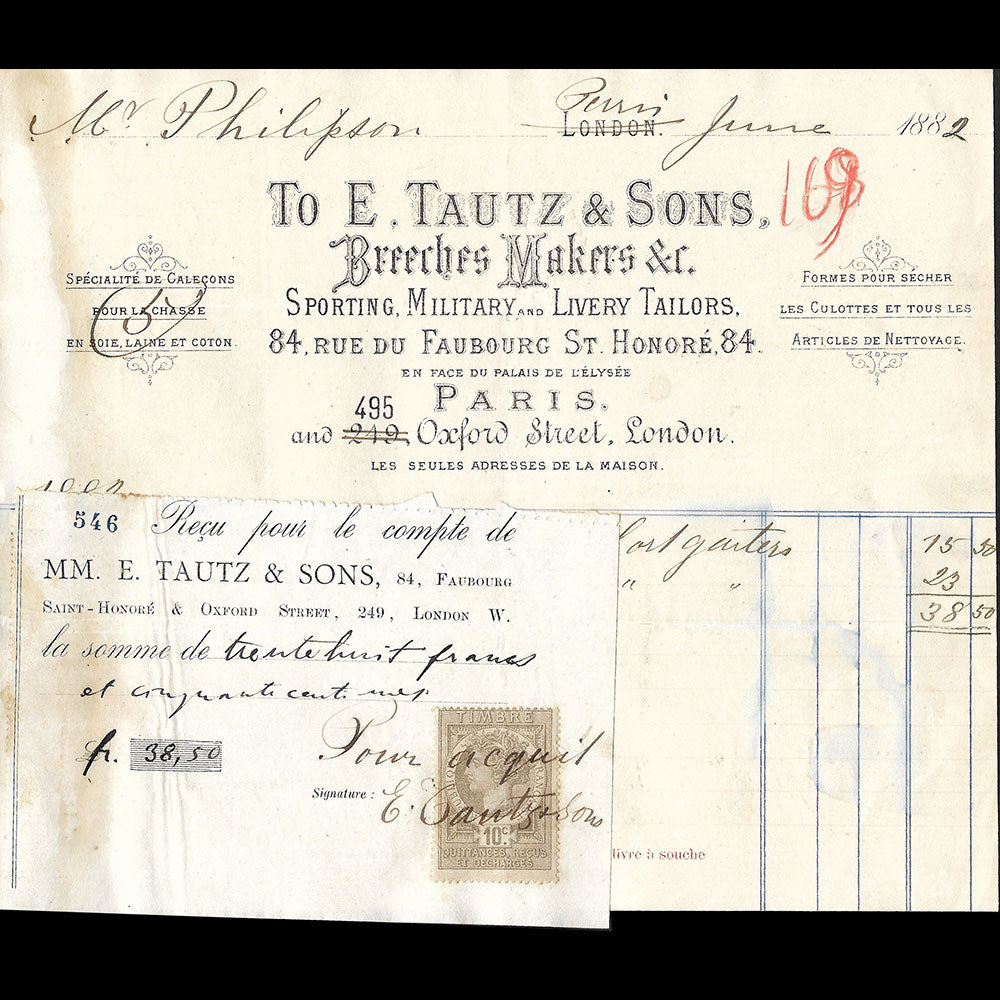 Mr Philipson Paris LONDON. June 1882
169
TO E. TAUTZ & SONS,
Breeches Makers &c.
SPORTING, MILITARY AND LIVERY TAILORS,
84, RUE DU FAUBOURG ST. HONORÉ, 84.
EN FACE DU PALAIS DE L'ÉLYSÉE
PARIS.
495
and 249, Oxford Street, London.
LES SEULES ADRESSES DE LA MAISON.
SPÉCIALITÉ DE CALEÇONS
POUR LA CHASSE
EN SOIE, LAINE ET COTON.
FORMES POUR SÉCHER
LES CULOTTES ET TOUS LES
ARTICLES DE NETTOYAGE.
gaiters 15 50
" " 23
38 50
546 Reçu pour le compte de
MM. E. TAUTZ & SONS, 84, FAUBOURG
SAINT-HONORÉ & OXFORD STREET, 249, LONDON W.
la somme de trente huit francs
et cinquante centimes
fr. 38,50
Pour acquit
Signature : E. Tautz & Sons
TIMBRE
10c
QUITTANCES, REÇUS
ET DÉCHARGES
livre à souche